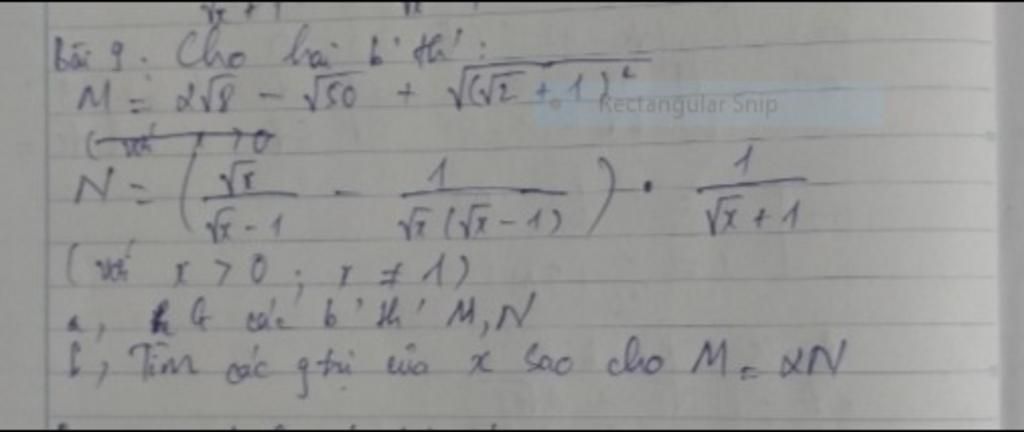 Bài 9. Cho hai b' th':
M = 2√8 - √50 + √(√2 + 1)²
Rectangular Snip
(với x > 0
N = (√x/(√x - 1) - 1/(√x(√x - 1))) · 1/(√x + 1)
(với x > 0 ; x ≠ 1)
a, G các b' th' M, N
b, Tìm các g trị của x sao cho M = 2N